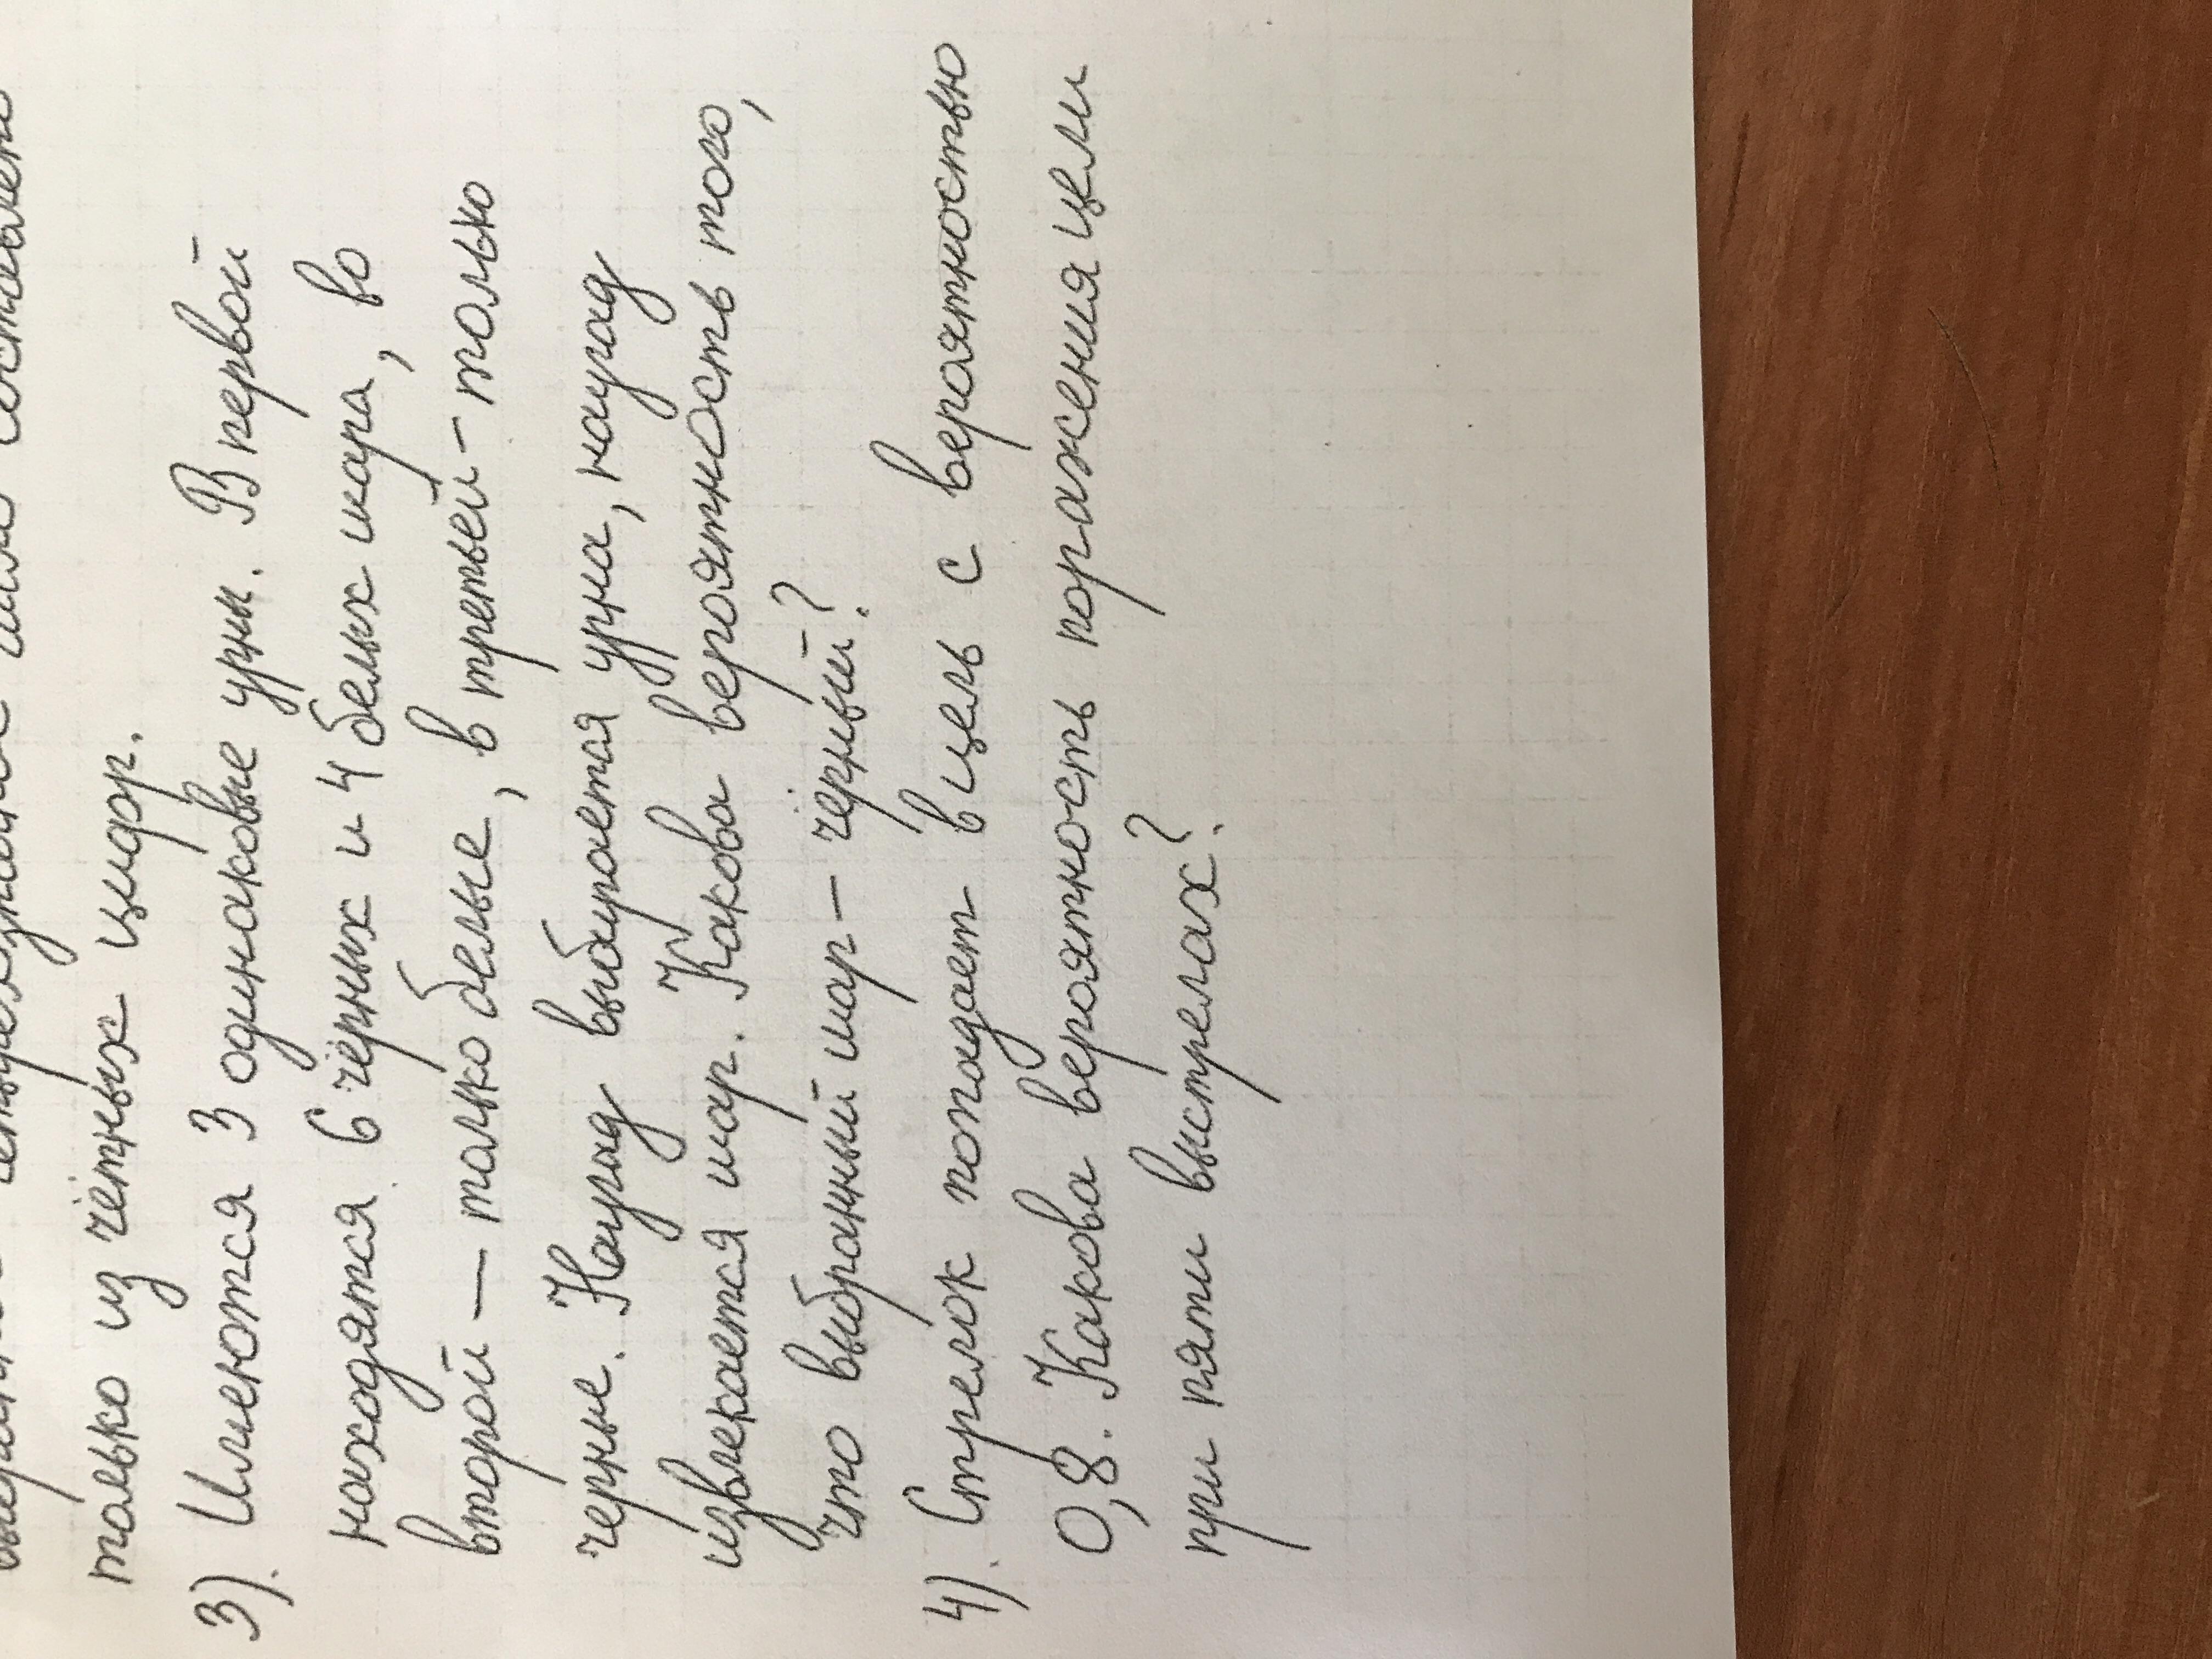 только из чётных цифр.
3). Имеются 3 одинаковые урны. В первой
находятся 6 чёрных и 4 белых шара, во
второй — только белые, в третьей - только
черные. Наугад выбирается урна, наугад
извлекается шар. Какова вероятность того,
что выбранный шар — чёрный?
4). Стрелок попадает в цель с вероятностью
0,8. Какова вероятность поражения цели
при пяти выстрелах?